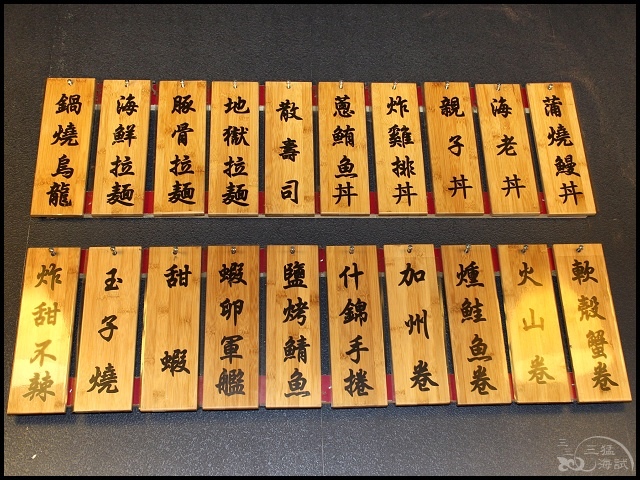 蒲燒鰻丼
海老丼
親子丼
炸雞排丼
蔥鮪魚丼
散壽司
地獄拉麵
豚骨拉麵
海鮮拉麵
鍋燒烏龍
軟殼蟹卷
火山卷
燻鮭魚卷
加州卷
什錦手捲
鹽烤鯖魚
蝦卵軍艦
甜蝦
玉子燒
炸甜不辣
三猛海試